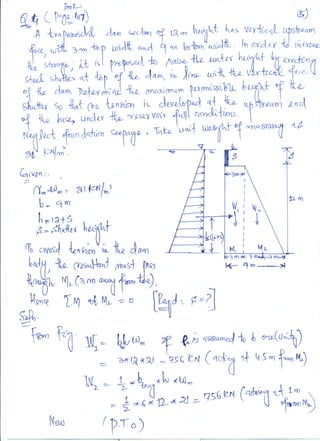 Q.4 (Page. 407)
A trapezoidal dam section of 12m height has vertical upstream
face, with 3m top width and 9m bottom width. In order to increase
the storage, it is proposed to raise the water height by erecting
steel shutter at top of the dam, in line with the vertical face
of the dam. Determine the maximum permissible height of the
shutter so that no tension is developed at the upstream end
of the base, under the reservoir full conditions.
Neglect foundation seepage. Take unit weight of masonry as
21 kN/m³.
Given:-
b = 9m
h = 12+S
S = Shutter height
To avoid tension in the dam
body, the resultant must pass
through M₂ (3m away from toe).
Hence ΣM at M₂ = 0 [Reqd: S=?]
Soln.
From Fig.
= 3*12*21 = 756 KN (acting at 4.5m from M₂)
= ½ *6*12*21 = 756 KN (acting at 1m from M₂)
Now (P.T.O)
S
3m
12m
W₁
W₂
M₁
M₂
3m
3m
3m
9m